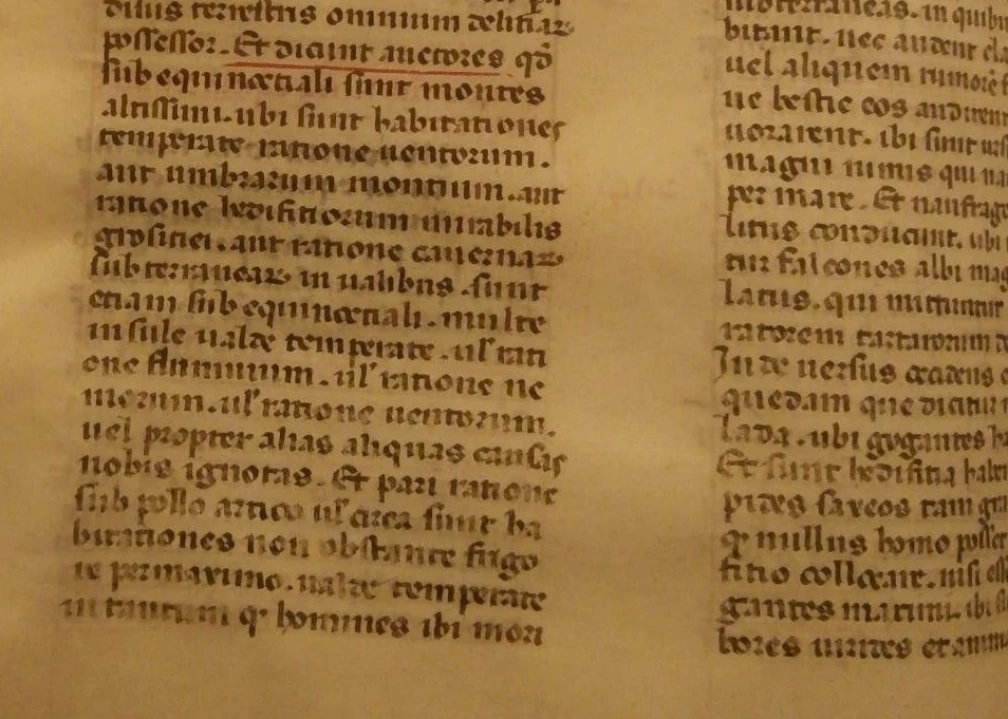 disus terrestris omnium delitiaꝝ
possessor. Et dicunt auctores qđ
sub equinoctiali sunt montes
altissimi. ubi sunt habitationes
temperate ratione uentorum.
aut umbrarum montium. aut
ratione hedifitiorum mirabilis
grositiei. aut ratione cauernaꝝ
subterraneaꝝ in ualibus. sunt
etiam sub equinoctiali. multe
insule ualde temperate. ul' rati
one fluminum. ul' ratione ne
morum. ul' ratione uentorum.
uel propter alias aliquas causas
nobis ignotas. Et pari ratione
sub pollo artico ul' circa sunt ha
bitationes non obstante frigo
re permaximo. ualde temperate
in tantum qꝫ homines ibi mori
in quib
bitant. nec audent
uel aliquem rumorē
ue bestie eos audirent
uorarent. ibi sunt urs
magni nimis qui na
per mare. Et naufrag
litus conducunt. ubi
tur falcones albi mag
latus. qui mittuntur
ratorem tartarorum
Inde uersus occidens
quedam que dicitur
lada. ubi gygantes
Et sunt hedifitia habe
pides saxeos tam gra
qꝫ nullus homo posset
titio collocare. nisi
gantes maximi. ibi
bores uirides et anim